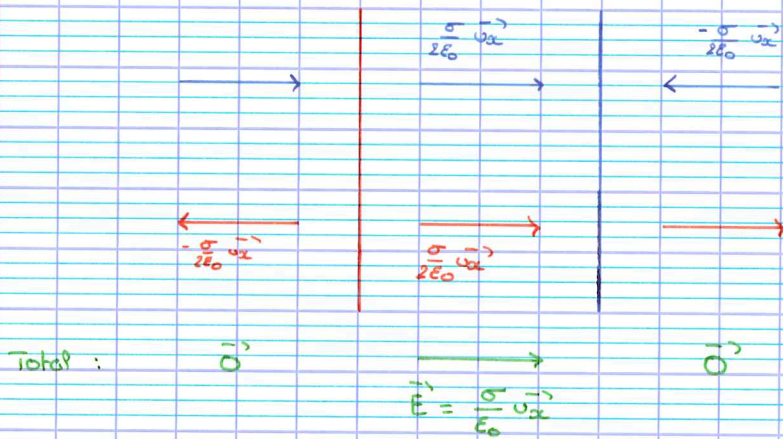 σ/2ε₀ u⃗x
-σ/2ε₀ u⃗x
-σ/2ε₀ u⃗x
σ/2ε₀ u⃗x
Total : 0⃗ 0⃗
E⃗ = σ/ε₀ u⃗x